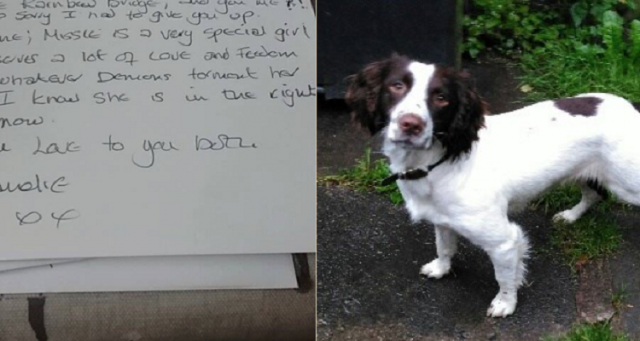 Rainbow Bridge, and you me?!
so sorry I had to give you up.
me; Missie is a very special girl
serves a lot of Love and Freedom
whatever Demons torment her
I know she is in the right
now.
Love to you both